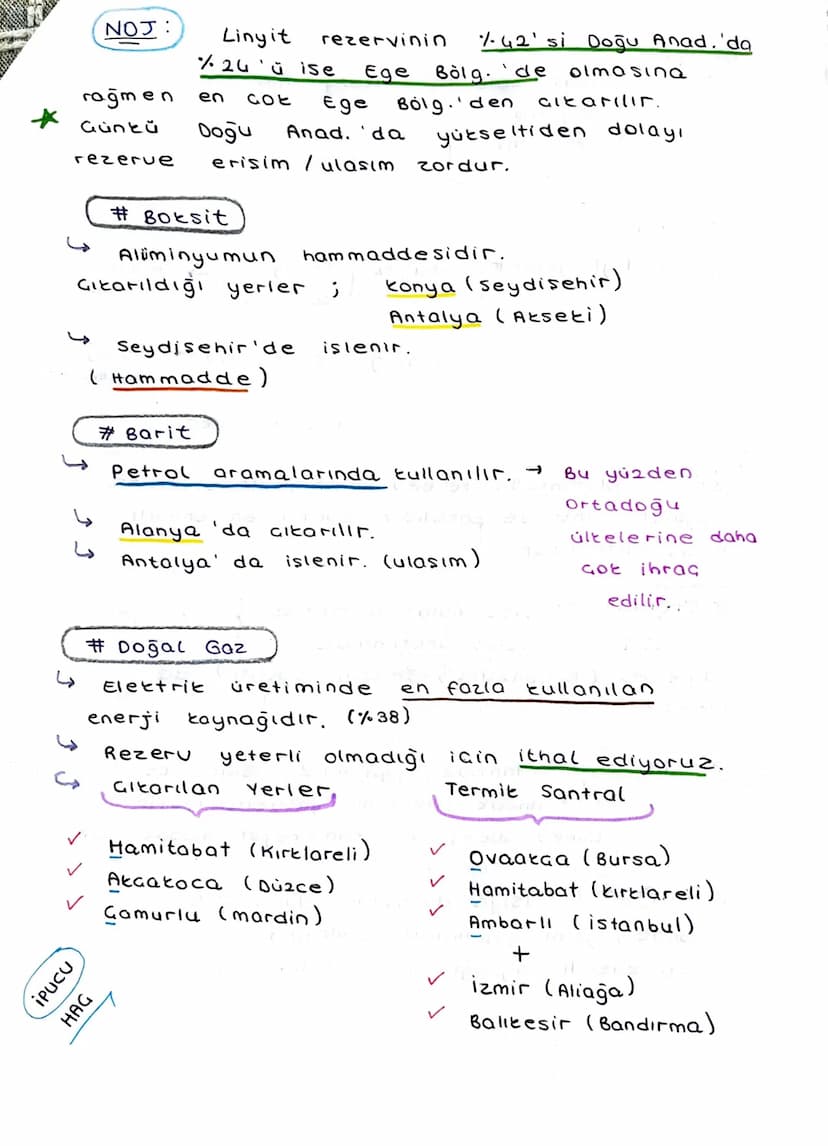 NOT:
Linyit rezervinin %42'si Doğu Anad.'da
%24'ü ise Ege Bölg.'de olmasına
rağmen en çok Ege Bölg.'den çıkarılır.
Çünkü Doğu Anad.'da yükseltiden dolayı
rezerve erişim / ulaşım zordur.
# Boksit
↳ Alüminyumun hammaddesidir.
Çıkarıldığı yerler ; Konya (Seydişehir)
Antalya (Akseki)
↳ Seydişehir'de işlenir.
(Hammadde)
# Barit
↳ Petrol aramalarında kullanılır. → Bu yüzden
Ortadoğu
ülkelerine daha
çok ihraç
edilir.
↳ Alanya'da çıkarılır.
↳ Antalya'da işlenir. (ulaşım)
# Doğal Gaz
↳ Elektrik üretiminde en fazla kullanılan
enerji kaynağıdır. (%38)
↳ Rezerv yeterli olmadığı için ithal ediyoruz.
↳ Çıkarılan Yerler
✓ Hamitabat (Kırklareli)
✓ Akçakoca (Düzce)
✓ Çamurlu (Mardin)
İPUCU
HAÇ
Termik Santral
✓ Ovaakça (Bursa)
✓ Hamitabat (Kırklareli)
✓ Ambarlı (İstanbul)
+
✓ İzmir (Aliağa)
✓ Balıkesir (Bandırma)